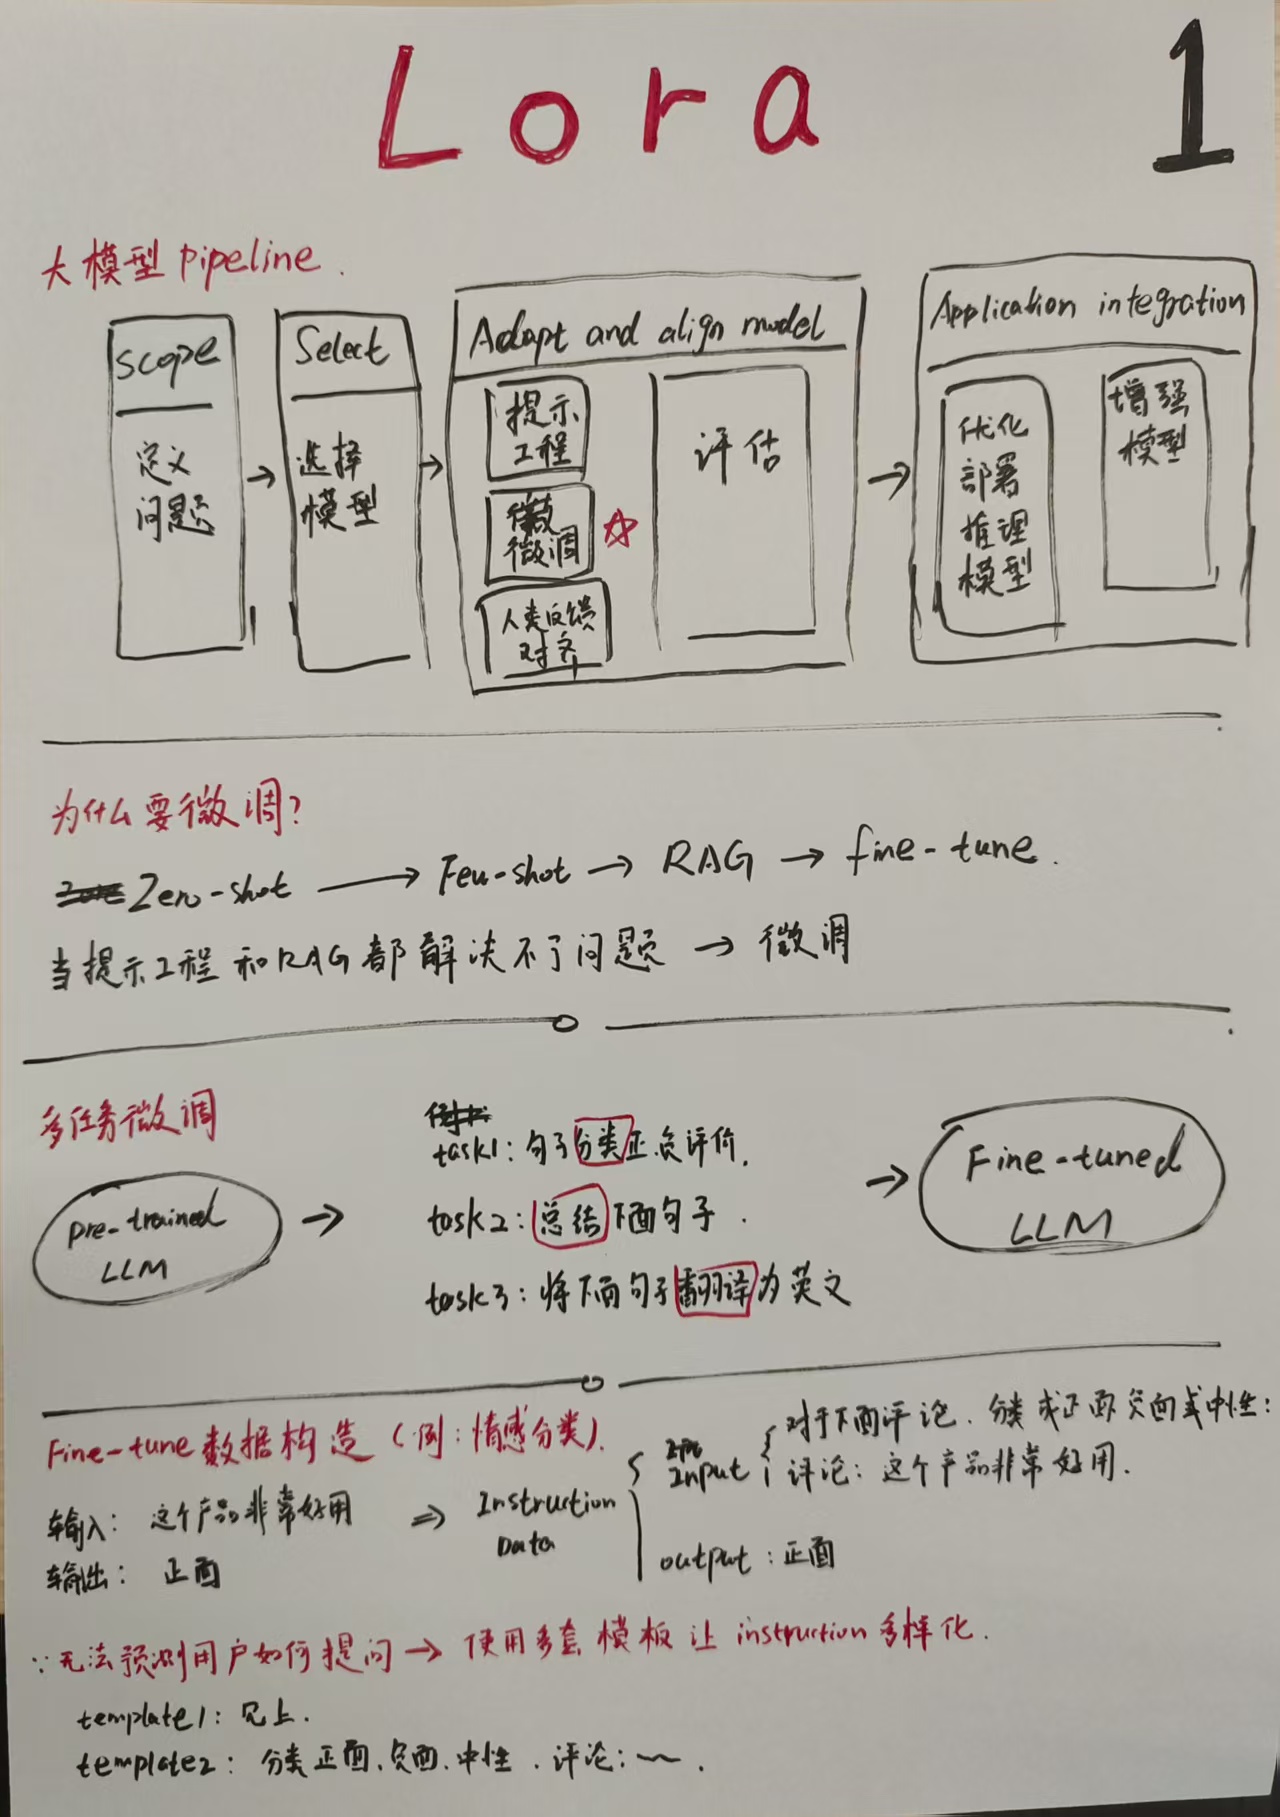 Lora
1
大模型 pipeline.
Scope
定义
问题
Select
选择
模型
Adapt and align model
提示
工程
微调
人类反馈
对齐
评估
Application integration
优化
部署
推理
模型
增强
模型
为什么要微调?
Zero-shot → Few-shot → RAG → fine-tune.
当提示工程和RAG都解决不了问题 → 微调
多任务微调
pre-trained
LLM
→
task1: 句子分类正负评价.
task2: 总结下面句子.
task3: 将下面句子翻译为英文
→
Fine-tuned
LLM
Fine-tune 数据构造 (例: 情感分类).
输入: 这个产品非常好用
输出: 正面
⇒ Instruction
Data
Input
对于下面评论. 分类成正面负面或中性:
评论: 这个产品非常好用.
output: 正面
∵ 无法预测用户如何提问 → 使用多套模板让 instruction 多样化.
template1: 见上.
template2: 分类正面、负面、中性. 评论: ~~.